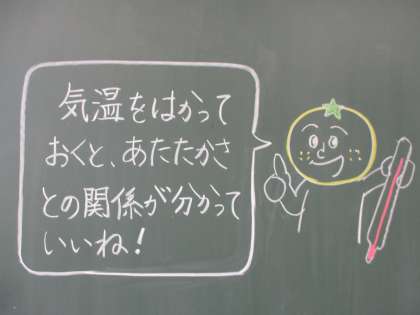 気温をはかって
おくと、あたたかさ
との関係が分かって
いいね!